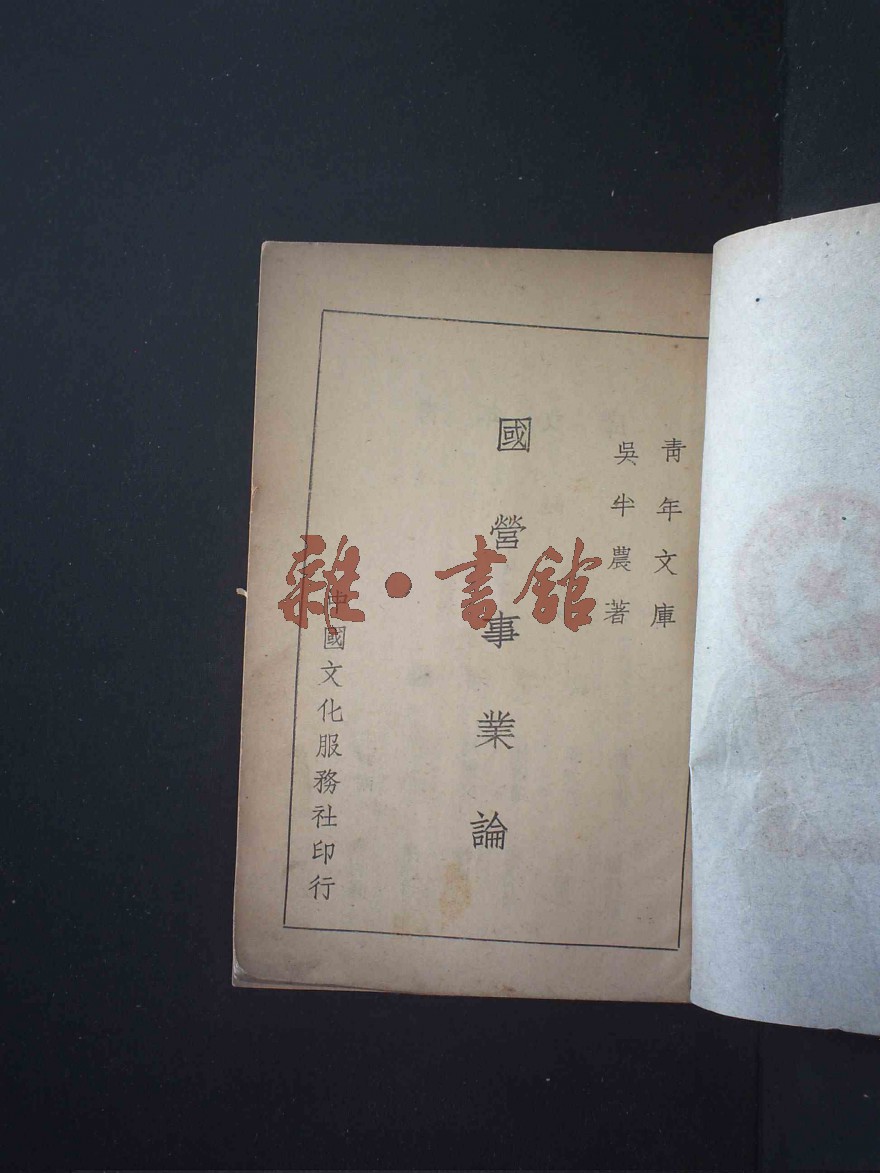 青年文庫
吳半農著
國營事業論
中國文化服務社印行
雜·書館